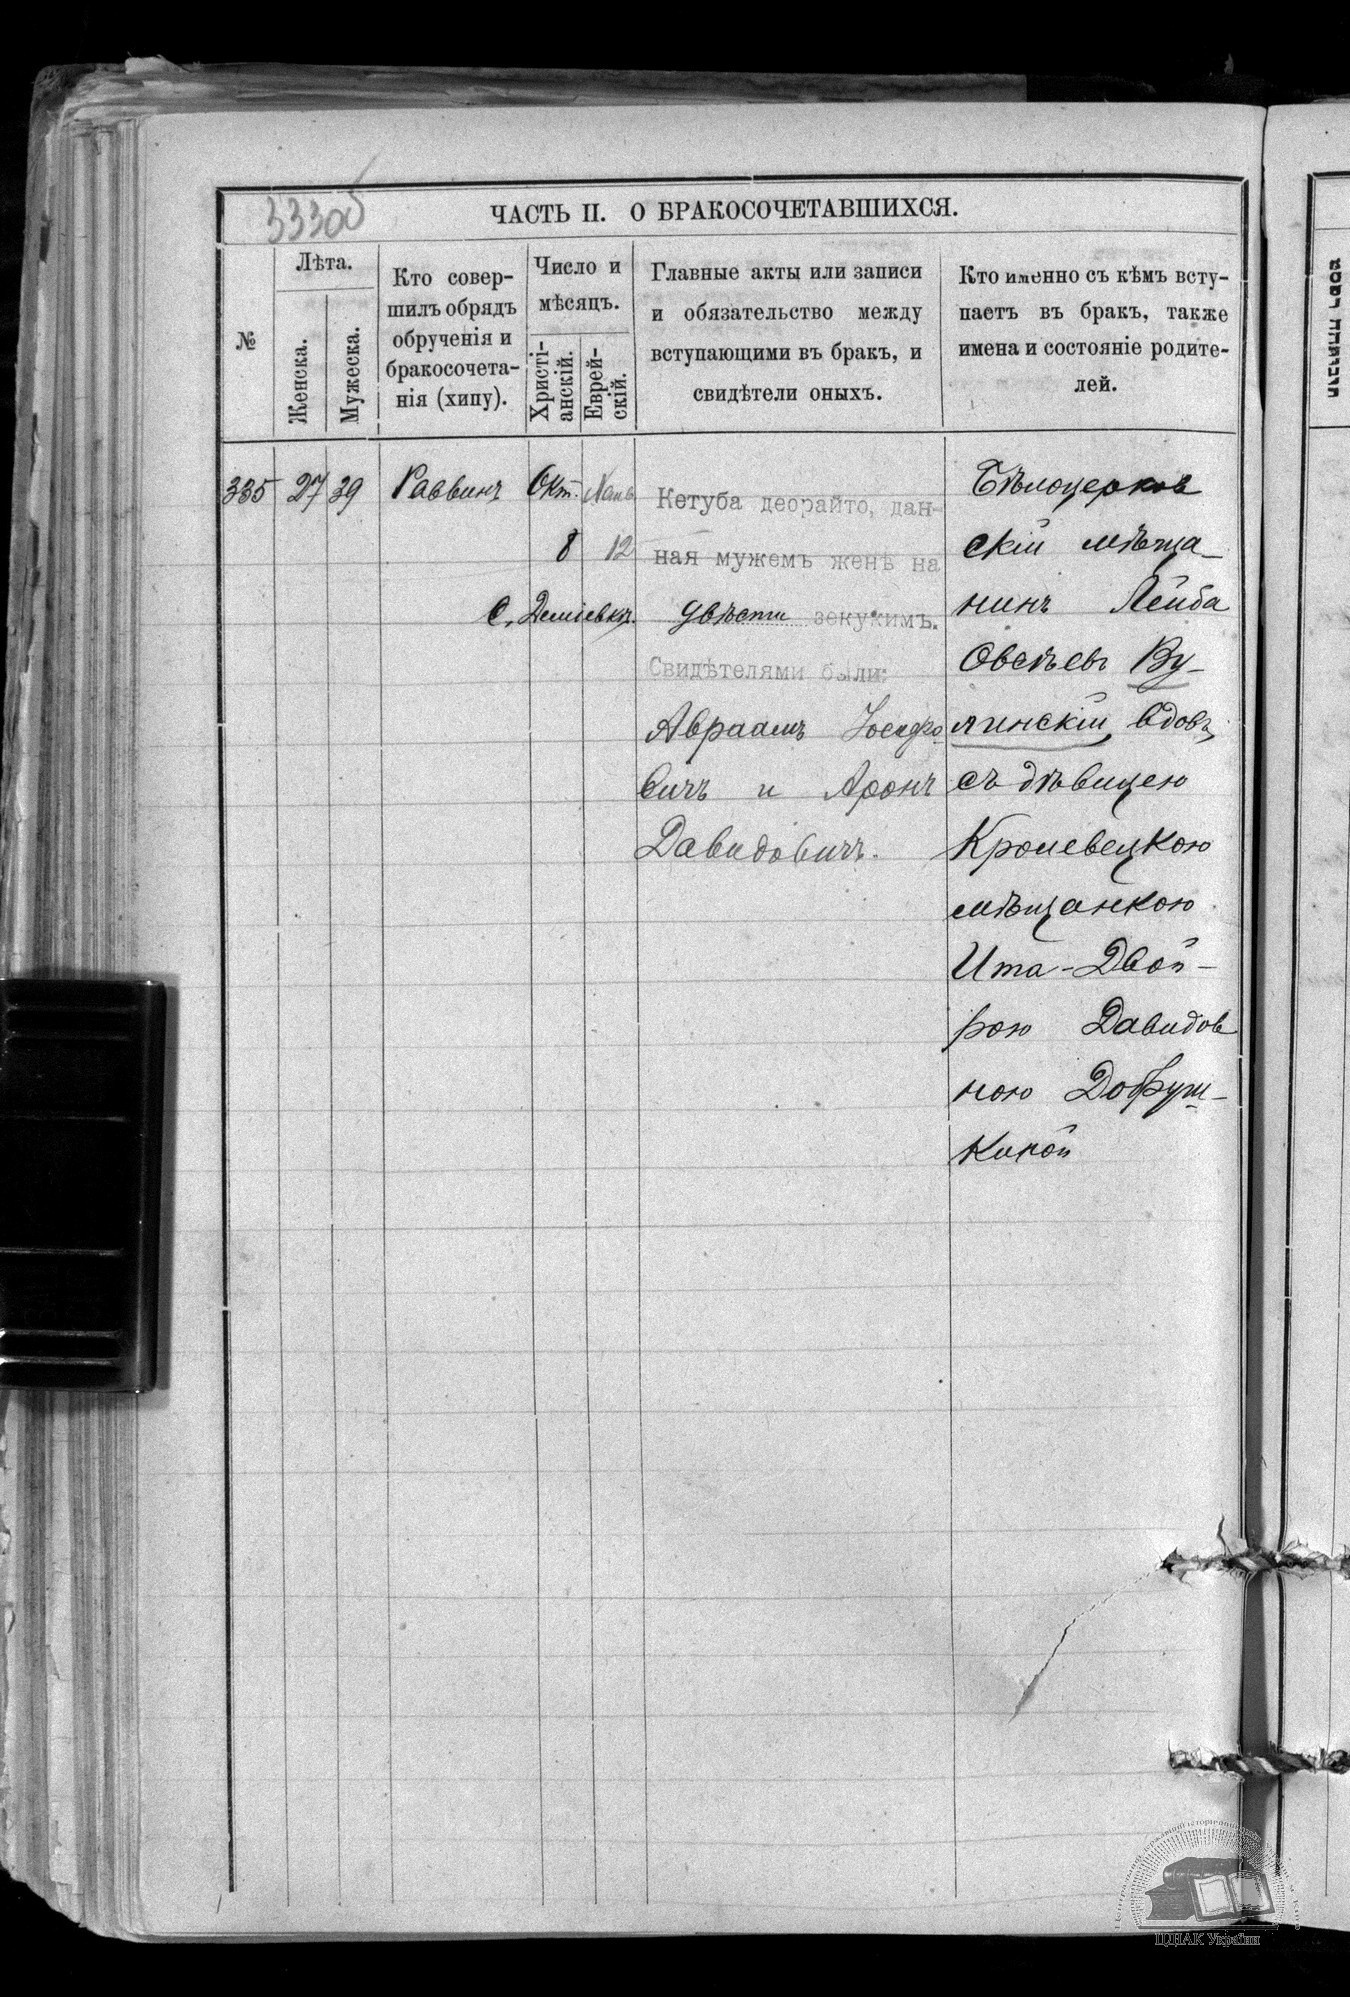 333об
ЧАСТЬ II. О БРАКОСОЧЕТАВШИХСЯ.
№
Лѣта.
Женска.
Мужеска.
Кто совер-
шилъ обрядъ
обрученія и
бракосочета-
нія (хипу).
Число и
мѣсяцъ.
Христі-
анскій.
Еврей-
скій.
Главные акты или записи
и обязательство между
вступающими въ бракъ, и
свидѣтели оныхъ.
Кто именно съ кѣмъ всту-
паетъ въ бракъ, также
имена и состояніе родите-
лей.
335 27 39 Раввинъ Окт.
8 12
С. Деміевкѣ.
Кетуба деорайто, дан-
ная мужемъ женѣ на
двѣсти зекукимъ.
Свидѣтелями были:
Авраамъ Іосифо
вичъ и Аронъ
Давидовичъ.
Бѣлоцерков
скій мѣща-
нинъ Лейба
Овсѣевъ Ву-
линскій, вдовъ,
съ дѣвицею
Кролевецкою
мѣщанкою
Ита-Двой-
рою Давидов
ною Добруш-
киной
ЦДІАК України